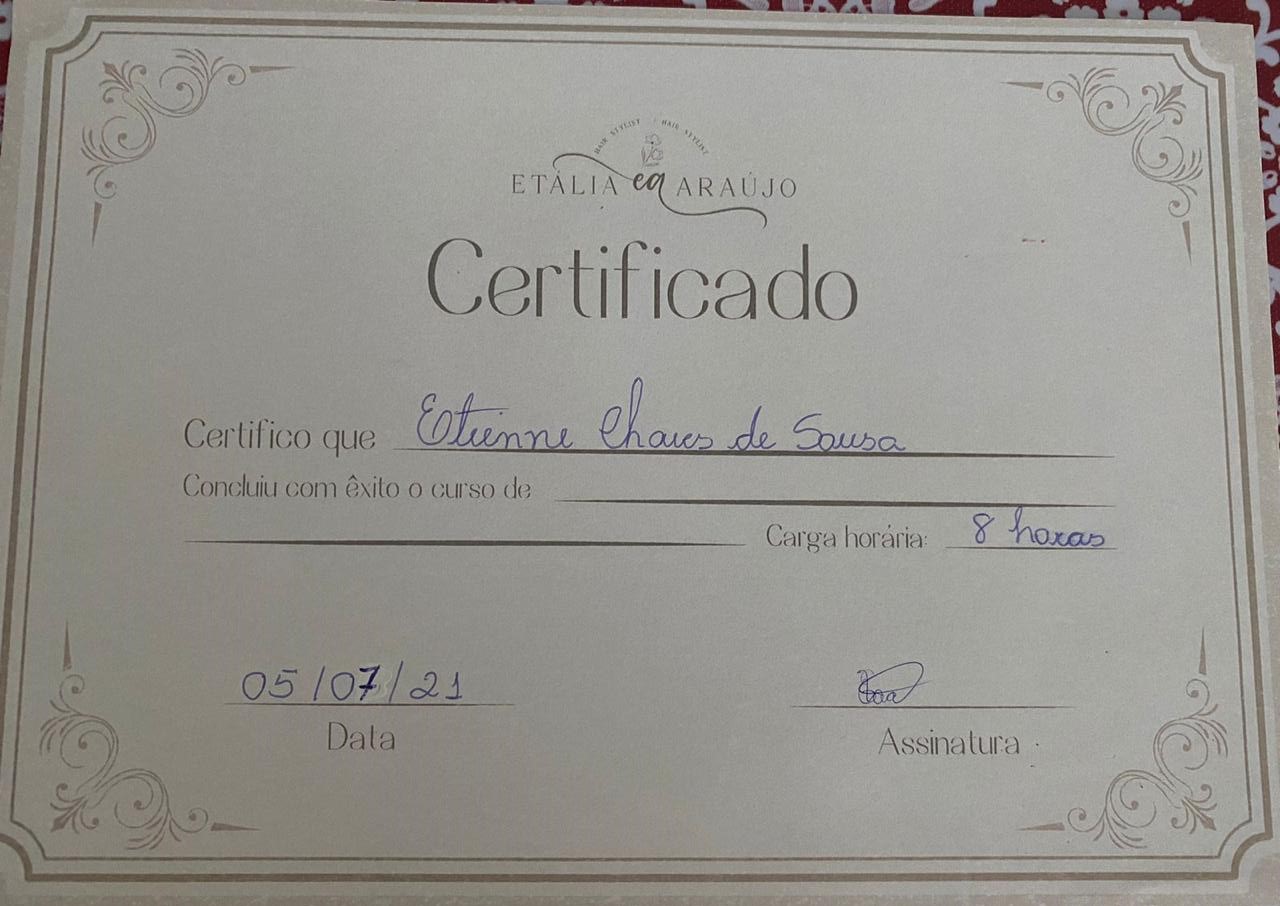 HAIR STYLIST HAIR STYLIST
ETÁLIA ea ARAÚJO
Certificado
Certifico que Etienne Chaves de Sousa
Concluiu com êxito o curso de
Carga horária: 8 horas
05/07/21
Data
Assinatura